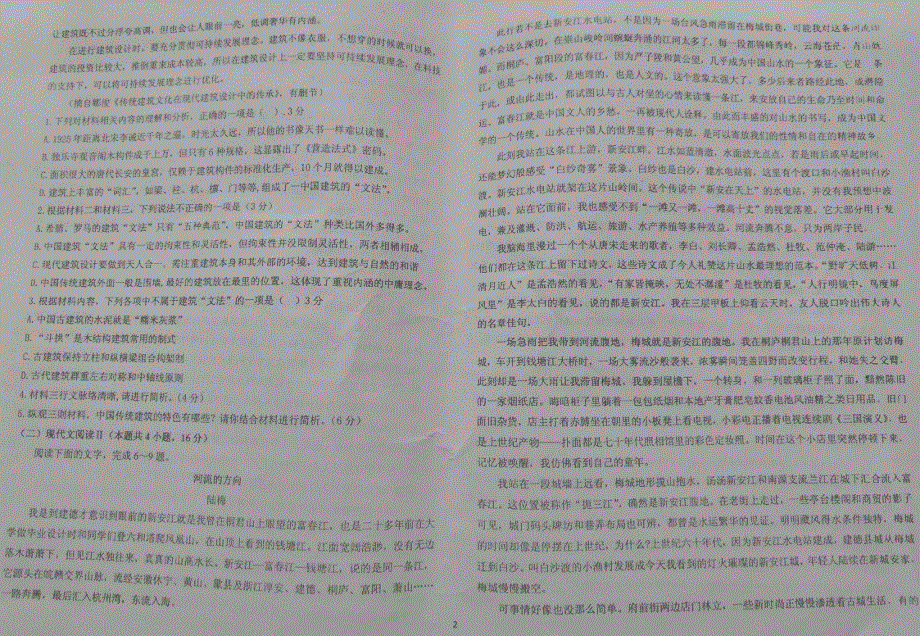 让建筑既不过分浮夸高调，但也会让人眼前一亮，低调奢华有内涵。
在进行建筑设计时，要充分贯彻可持续发展理念，建筑不像衣服，不想穿的时候就可以换，
建筑的投资比较大，推倒重来成本较高，所以在建筑设计上一定要坚持可持续发展理念，在科技
的支持下，可以将可持续发展理念进行优化。
（摘自郗俊《传统建筑文化在现代建筑设计中的传承》，有删节）
1.下列对材料相关内容的理解和分析，正确的一项是（ ）.3分
A.1925年距离北宋李诫近千年之遥，时光太久远，所以他的书像天书一样难以读懂。
B.独乐寺观音阁木构件成千上万，但只有6种规格，这显露出了《营造法式》密码。
C.面积很大的唐代长安的皇宫，仅赖于建筑构件的标准化生产，10个月就得以建成。
D.建筑上丰富的“词汇”，如梁、柱、枋、檩、门等等，组成了一中国建筑的“文法”。
2.根据材料二和材料三，下列说法不正确的一项是（3分）
A.希腊、罗马的建筑“文法”只有“五种典范”，中国建筑的“文法”种类比国外多得多。
B.中国建筑“文法”具有一定的拘束性和灵活性，但拘束性并没限制灵活性，两者相辅相成。
C.现代建筑设计要做到天人合一，需注重建筑本身和其外部的环境，达到建筑与自然的和谐
D.中国传统建筑外面一般是围墙，最好的建筑放在最里的位置，这体现了重视内涵的中庸理念。
3.根据材料内容，下列各项中不属于建筑“文法”的一项是（ ）3分
A.中国古建筑的水泥就是“糯米灰浆”
B.“斗拱”是木结构建筑常用的制式
C.古代建筑保持立柱和纵横梁组合构架制
D.古代建筑群重左右对称和中轴线原则
4.材料三行文脉络清晰,请进行简析。（4分）
5.纵观三则材料，中国传统建筑的特色有哪些？请你结合材料进行简析。（6分）
（二）现代文阅读Ⅱ（本题共4小题，16分）
阅读下面的文字，完成6～9题。
河流的方向
陆梅
我是到建德才意识到眼前的新安江就是我曾在桐君山上眺望的富春江，也是二十多年前在大
学做毕业设计时和同学们登六和塔爬凤凰山，在山顶上看到的钱塘江。江面宽阔浩渺，没有无边
落木萧萧下，但见江水独往来，真真的山高水长。新安江—富春江—钱塘江，说的是同一条江，
它源头在皖赣交界山脉，流经安徽休宁、黄山、歙县及浙江淳安、建德、桐庐、富阳、萧山……
一路奔腾，最后汇入杭州湾，东流入海。
此行若不是去新安江水电站，不是因为一场台风急雨滞留在梅城街巷，可能我对这条河流印
象不会这么深切。在崇山峻岭间蜿蜒奔涌的江河太多了，每一段都锦峰秀岭，云海苍茫。
桐庐、富阳段的富春江，因为严子陵和黄公望，几乎成为中国山水的一个象征。它是一条
江，也是一个传统，是地理的，也是人文的。这个意象太强大了，多少后来者路经此地，或溯掠
于此，或由此走出，都试图以与古人对坐的心情来读懂一条江，来安放自己的生命乃至时间和命
运。富春江就是中国文人的乡愁。一再被现代人诠释，由此而丰盛的对山水的书写，成为中国文
学的一个传统。山水在中国人的世界里有一种寄放，是可以寄放我们的性情和自在的精神故乡。
此刻我站在这条江上游，新安江畔。江水如蓝清滟，水面波光点点。若是雨后或早起时间，
还能梦幻般感受“白纱奇雾”景象。白纱也是白沙，建水电站前，这里有个渡口和小渔村叫白沙
渡。新安江水电站就架在这片山岭间。这个传说中“新安在天上”的水电站，并没有我预想中波
澜壮阔，站在它面前，我也感受不到“一滩又一滩，一滩高十丈”的视觉落差。它大部分用于发
电，兼及灌溉、防洪、航运、旅游、水产养殖等多种效益。河流奔腾不息，只为两岸子民。
我脑海里漫过一个个从唐宋走来的歌者，李白、刘长卿、孟浩然、杜牧、范仲淹、陆游……
他们都在这条江上留下过诗文，这些诗文成了今人礼赞这片山水最理想的范本。“野旷天低树，江
清月近人”是孟浩然的看见，“有家皆掩映，无处不潺湲”是杜牧的看见，“人行明镜中，鸟度屏
风里”是李太白的看见，说的都是新安江。我在三层甲板上仰看云天时，友人脱口吟出伟大诗人
的名章佳句。
一场急雨把我带到河流腹地，梅城就是新安江的腹地。我在桐庐桐君山上的那年原计划访梅
城，车开到钱塘江大桥时，一场大雾流沙般袭来，浓雾瞬间笼盖四野而改变行程，和她失之交臂。
此刻却是一场大雨让我滞留梅城。我躲到屋檐下，一个转身，和一列玻璃柜子照了面，黯然陈旧
的一家烟纸店，晦暗柜子里躺着一包包纸烟和本地产牙膏肥皂蚊香电池风油精之类日用品。旧门
面旧杂货，店主打着赤膊坐在朝里的小板凳上看电视，小彩电正播着电视连续剧《三国演义》，也
是上世纪产物——扑面都是七十年代照相馆里的彩色定妆照。时间在这个小店里突然停顿下来，
记忆被唤醒，我仿佛看到自己的童年。
我站在一段城墙上远看，梅城地形揽山抱水，汤汤新安江和南源支流兰江在城下汇合流入富
春江，这位置被称作“拖三江”，确然是新安江腹地。在老街上走过，一些亭台楼阁和商贸的影子
可见，城门码头牌坊和巷弄布局也可辨，都曾是水运繁华的见证。明明藏风得水条件独特，梅城
的时间却像是停摆在上世纪，为什么？上世纪六十年代，因为新安江水电站建成，建德县城从梅城
迁到白沙。叫白沙渡的小渔村发展成今天我看到的灯火璀璨的新安江城，年轻人陆续在新城安家，
梅城慢慢搬空。
可事情好像也没那么简单，府前街两边店门林立，一些新时尚正慢慢渗透着古城生活。有的
2